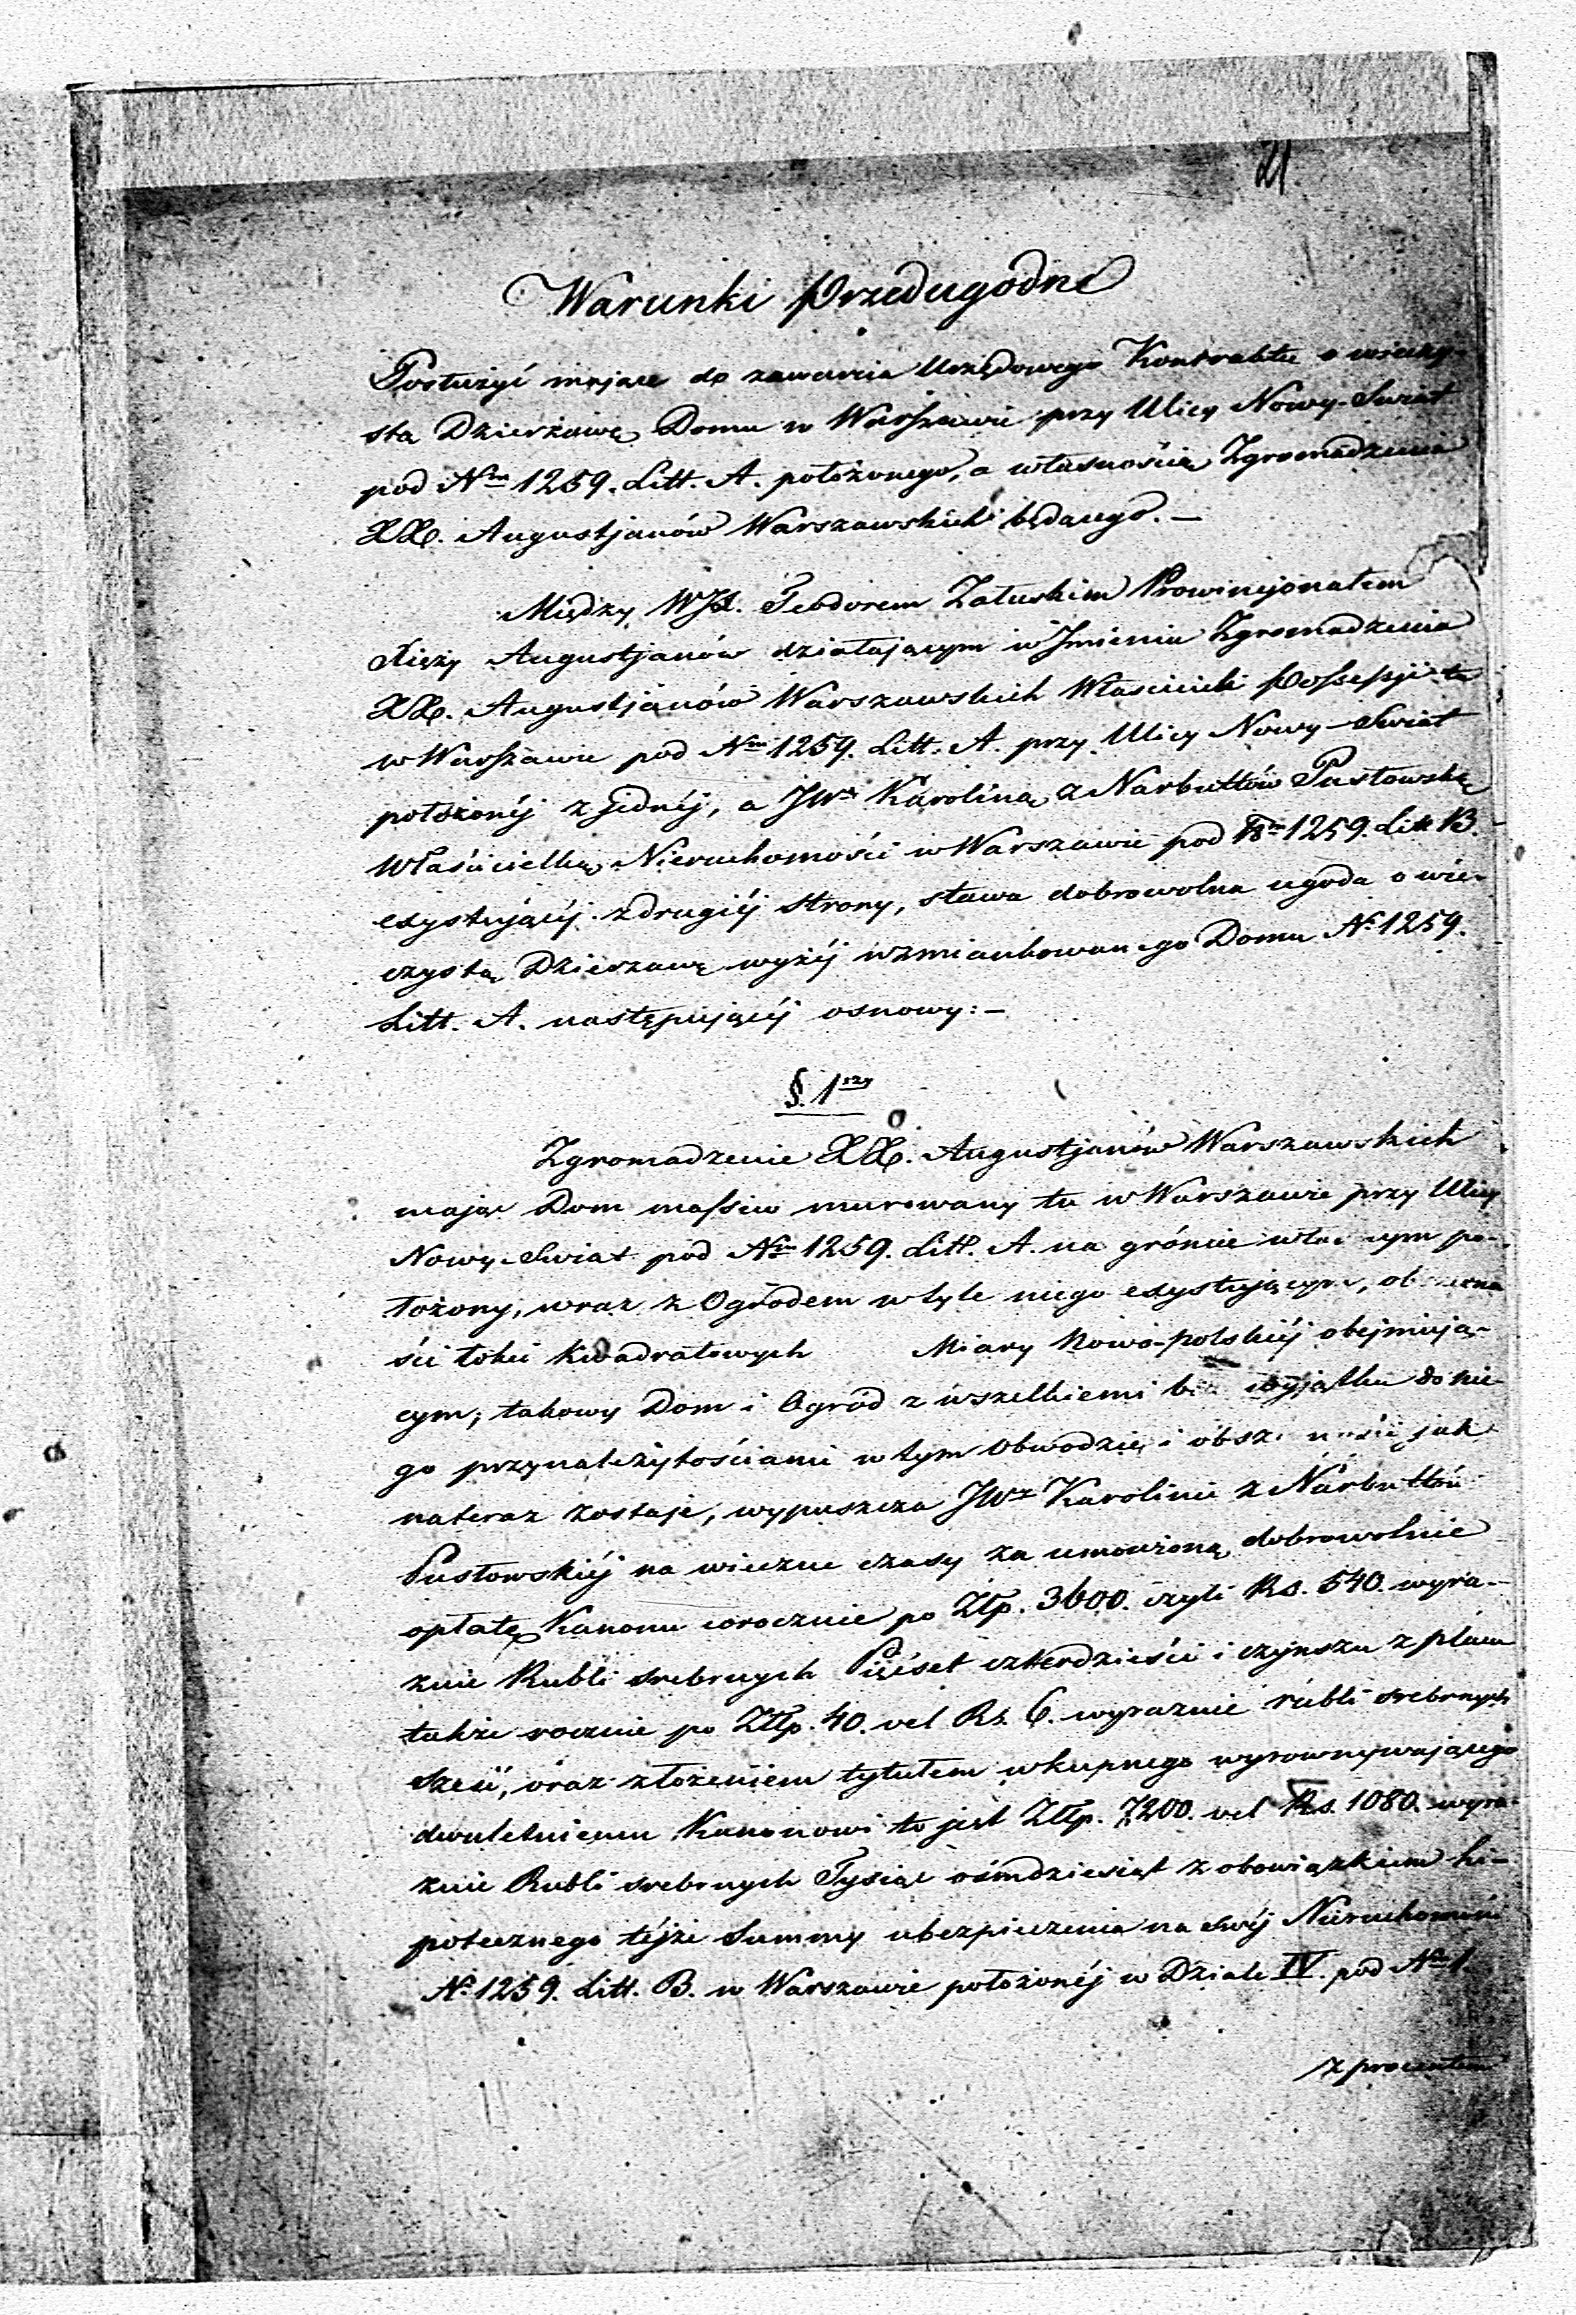 21.
Warunki Przedugodne
Posłużyć mające do zawarcia Urzędowego Kontraktu o wieczy-
stą Dzierżawę Domu w Warszawie przy Ulicy Nowy-Swiat
pod Nrm 1259. Litt. A. położonego, a własnością Zgromadzenia
XX. Augustjanów Warszawskich będącego. —
Między WJX. Teodorem Załuskim Prowincjonałem
Xięży Augustjanów działającym w Jmieniu Zgromadzenia
XX. Augustjanów Warszawskich Właścicieli Possessji tu
w Warszawie pod Nrm 1259. Litt. A. przy Ulicy Nowy-Swiat
położonéj z jednéj, a JWą Karoliną z Narbuttów Pusłowską
Właścicielką Nieruchomości w Warszawie pod Nrm 1259. Litt B.
exystującéj z drugiéj strony, stawa dobrowolna ugoda o wie-
czystą Dzierzawę wyżéj wzmiankowanego Domu No 1259.
Litt. A. następującéj osnowy: —
§. 1szy
Zgromadzenie XX. Augustjanów Warszawskich
mając Dom massiw murowany tu w Warszawie przy Ulicy
Nowy-Swiat pod Nrm 1259. Litt. A. na gróncie własnym po-
łożony, wraz z Ogrodem w tyle niego exystującym,
ści łokci kwadratowych Miary Nowo-polskiéj obejmują-
cym, takowy Dom i Ogród z wszelkiemi bez wyjątku do nie-
go przynależytościami w tym Obwodzie i obszerności jak
nateraz zostaje, wypuszcza JWéj Karolinie z Narbuttów
Pusłowskiéj na wieczne czasy za umówioną dobrowolnie
opłatę Kanonu corocznie po Złp. 3600. czyli Rs. 540. wyra-
znie Rubli srebrnych Pięćset czterdzieści i czynszu z placu
także rocznie po Złp. 40. vel Rs. 6. wyraznie rubli srebrnych
sześć, oraz złożeniem tytułem wkupnego wyrownywającego
dwuletniemu Kanonowi to jest Złp. 7200. vel Rs. 1080. wyra-
znie Rubli srebrnych Tysiąc ośmdziesiąt z obowiązkiem hi-
potecznego téjże Summy ubezpieczenia na swéj Nieruchomości
No 1259. Litt. B. w Warszawie położonéj w Dziale IV. pod Nrm 1.
z procentem